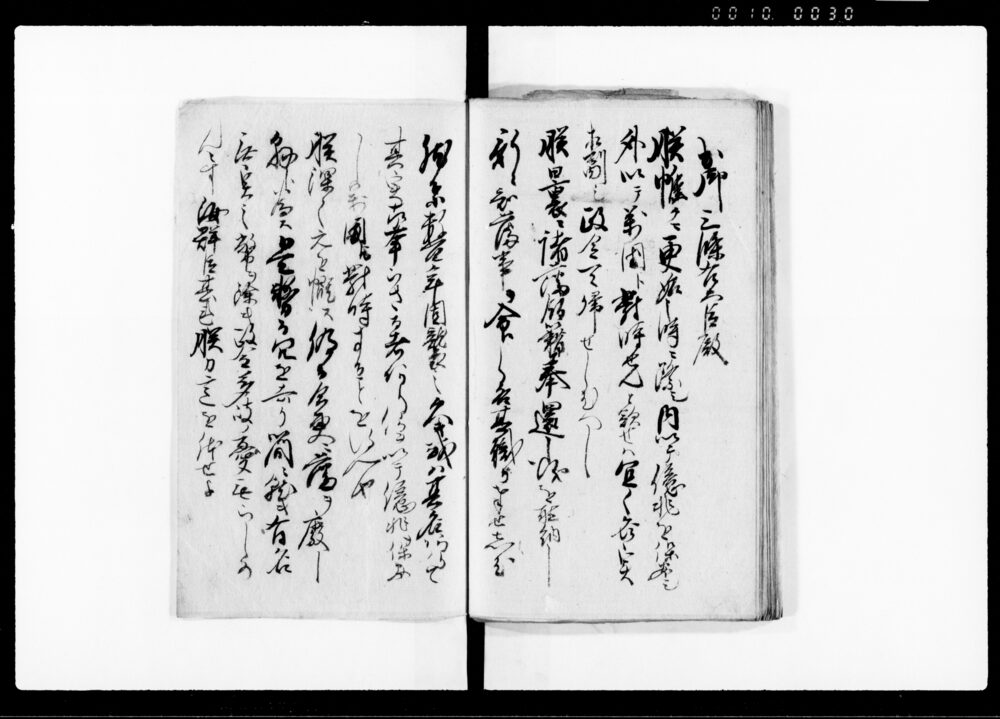 0010. 0030
出御 三條右大臣殿
朕惟フニ更始ノ時ニ際シ内以テ億兆ヲ保安シ
外以テ萬國ト對峙セント欲セハ宜ク名實
相副ヒ政令一ニ歸セシムヘシ
朕曩ニ諸藩版籍奉還ノ議ヲ聽納シ
新ニ知藩事ヲ命シ各其職ヲ奉セシム
然ルニ數百年因襲ノ久キ或ハ其名アリテ
其實擧ラサル者アリ何ヲ以テ億兆ヲ保安
シ萬國ト對峙スルヲ得ンヤ
朕深ク之ヲ慨ス仍テ今更ニ藩ヲ廢シ
縣ト爲ス是務テ冗ヲ去リ簡ニ就キ有名
無實ノ弊ヲ除キ政令多岐ノ憂無ラシメ
ントス汝群臣其レ朕カ意ヲ體セヨ